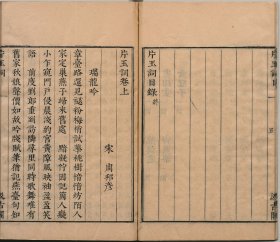 片玉詞目
五
汲古閣
片玉詞目錄終
片玉詞卷上
宋 周邦彥
瑞龍吟
章臺路還見褪粉梅梢試華桃樹愔愔坊陌人
家定巢燕子歸來舊處 黯凝佇因記箇人癡
小乍窺門戶侵晨淺約宮黃障風映袖盈盈笑
語 前度劉郎重到訪隣尋里同時歌舞唯有
舊家秋娘聲價如故吟牋賦筆猶記燕臺句知
片玉詞